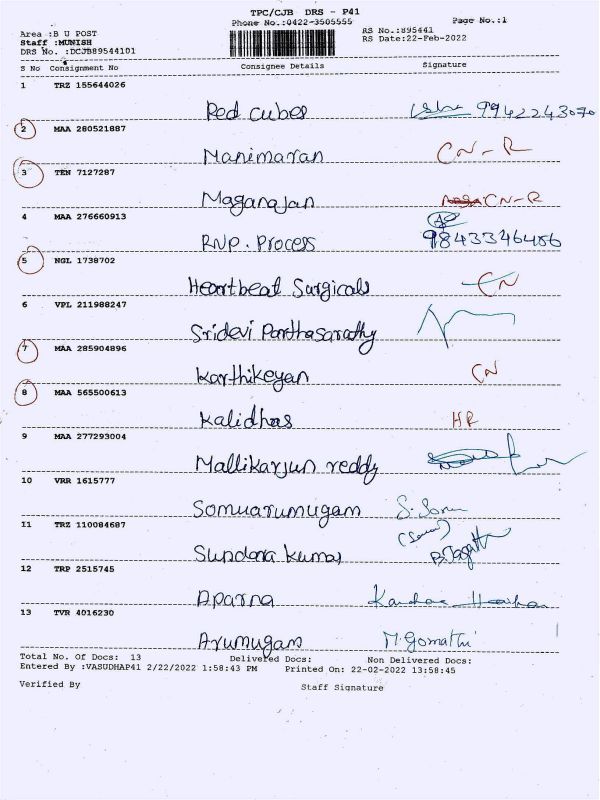 TPC/CJB DRS - P41
Phone No.:0422-3505555 Page No.:1
Area :B U POST RS No.:895441
Staff :MUNISH RS Date:22-Feb-2022
DRS No. :DCJB89544101
S No Consignment No Consignee Details Signature
1 TRZ 155644026
Red cubes 9942243070
2 MAA 280521887
Manimaran CN-R
3 TEN 7127287
Maganajan CN-R
4 MAA 276660913
RNP. Process 9843346486
5 NGL 1738702
Heartbeat Surgicals CN
6 VPL 211988247
Sridevi Parthasarathy
7 MAA 285904896
Karthikeyan CN
8 MAA 565500613
Kalidhas HR
9 MAA 277293004
Mallikarjun reddy
10 VRR 1615777
Somuarumugam
11 TRZ 110084687
Sundara Kumar
12 TRP 2515745
Aparna
13 TVR 4016230
Arumugam M.Gomathi
Total No. Of Docs: 13 Delivered Docs: Non Delivered Docs:
Entered By :VASUDHAP41 2/22/2022 1:58:43 PM Printed On: 22-02-2022 13:58:45
Verified By Staff Signature